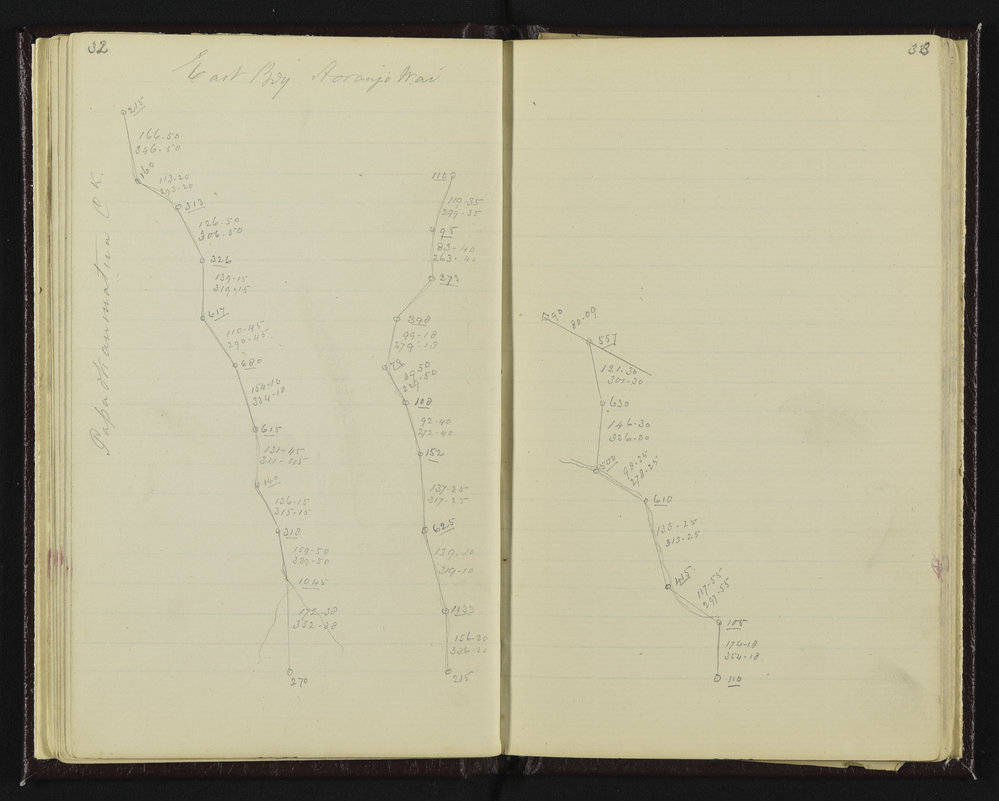 32
East Bdy Aoranga Wai
215
166.50
346.50
160
113-20
293-20
313
126.50
306.50
326
139-15
319-15
617
110-45
290-45
680
154-10
334-10
615
131-45
311-45
140
136-15
315-15
318
159-50
339-50
1045
172-38
352-38
270
110
119-35
299-35
95
83-40
263-40
273
398
99-18
279-18
79
49.50
229.50
108
92-40
272-40
152
137-25
317-25
625
139-10
319-10
1133
156-20
336-20
215
33
90
80-09
557
121.30
301-30
630
146-30
326-30
500
98-25
278-25
610
133-25
313-25
415
117-55
297-55
105
174-18
354-18
110